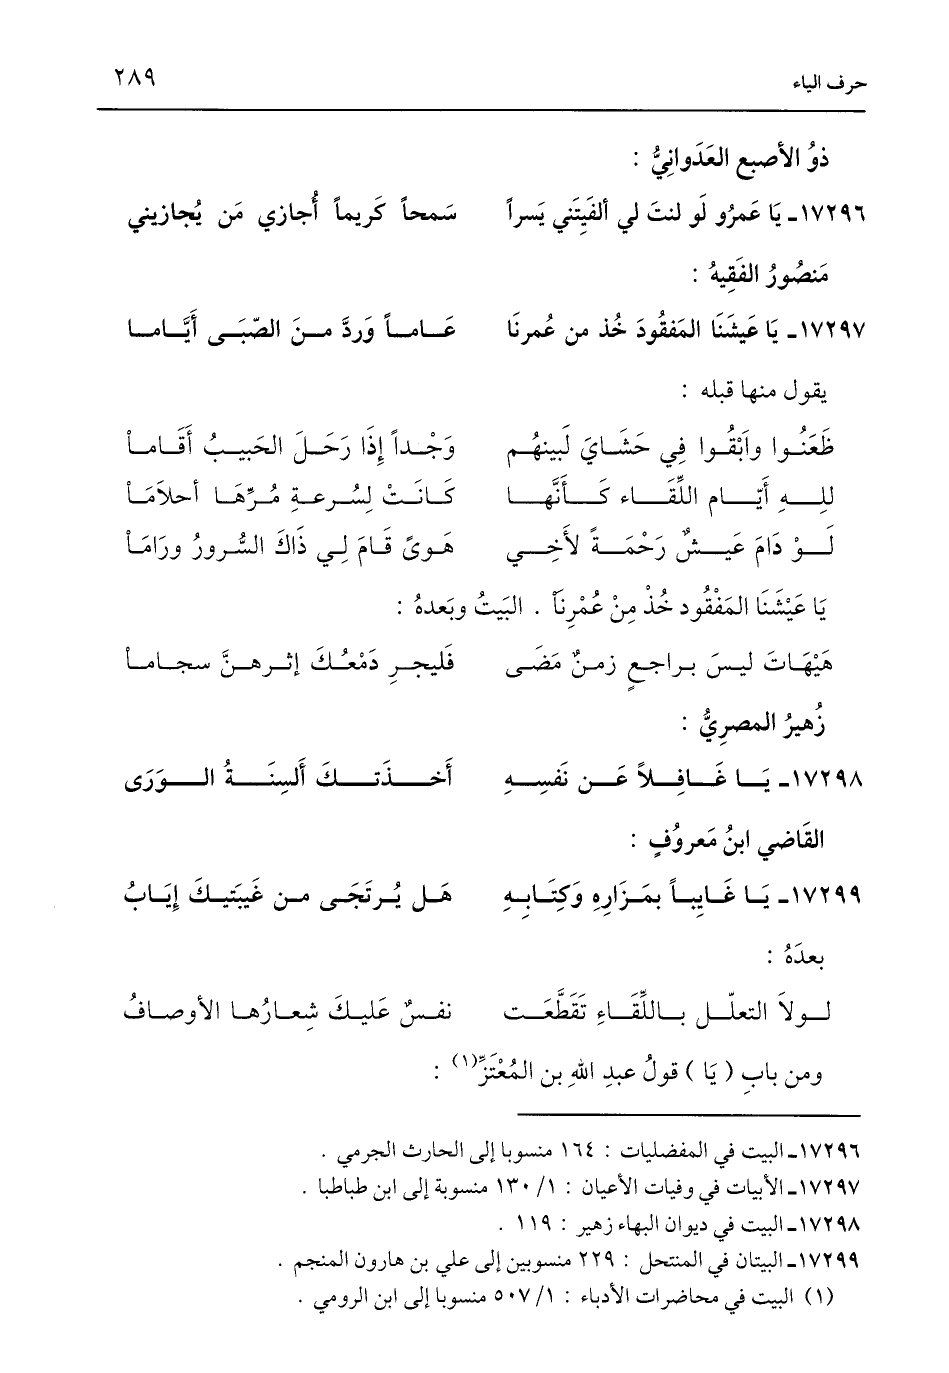 حرف الياء ٢٨٩
ذوُ الأصبع العَدَوانِيُّ :
١٧٢٩٦ـ يَا عَمرُو لَو لنتَ لي ألفَيتَني يَسراً سَمحاً كَريماً أُجازي مَن يُجازيني
مَنصُورُ الفَقِيهُ :
١٧٢٩٧ـ يَا عَيشَنَا المَفقُودَ خُذ من عُمرنَا عَـامـاً وَردَّ مـنَ الصِّبَـى أيَّـامـا
يقول منها قبله :
ظَعَنُـوا وأَبْقُـوا فِي حَشَـايَ لَبينهُـم وَجْـداً إِذَا رَحَـلَ الحَبيـبُ أَقَـاماْ
للـهِ أَيَّـام اللِّقَـاء كَـأَنَّهـا كَـانَـتْ لِسُـرعـةِ مُـرِّهَـا أحلاَمَـاْ
لَـوْ دَامَ عَيـشٌ رَحْمَـةً لأَخِـي هَـوىً قَـامَ لِـي ذَاكَ السُّـرورُ ورَامَـاْ
يَا عَيْشَنَا المَفْقُود خُذْ مِنْ عُمْرِنَاْ . البَيتُ وبَعدهُ :
هَيْهَـاتَ ليـسَ بـراجعٍ زمـنٌ مَضَـى فَليجـرِ دَمْعُـكَ إثـرهـنَّ سجـامـاْ
زُهيرُ المصرِيُّ :
١٧٢٩٨ـ يَـا غَـافِـلاً عَـن نَفسِـهِ أَخـذَتـكَ أَلسِنَـةُ الـوَرَى
القَاضي ابنُ مَعروُفٍ :
١٧٢٩٩ـ يَـا غَـايِبـاً بمَـزَارِهِ وَكِتَـابِـهِ هَـل يُـرتَجَـى مـن غَيبَتيـكَ إيَـابُ
بعدَهُ :
لـولاَ التعلّـل بـاللِّقَـاءِ تَقَطَّعَـت نفـسٌ عَليـكَ شِعـارُهـا الأوصـافُ
ومن بابِ ( يَا ) قولُ عبدِ اللهِ بن المُعْتَزِّ(١) :
١٧٢٩٦ـ البيت في المفضليات : ١٦٤ منسوبا إلى الحارث الجرمي .
١٧٢٩٧ـ الأبيات في وفيات الأعيان : ١/ ١٣٠ منسوبة إلى ابن طباطبا .
١٧٢٩٨ـ البيت في ديوان البهاء زهير : ١١٩ .
١٧٢٩٩ـ البيتان في المنتحل : ٢٢٩ منسوبين إلى علي بن هارون المنجم .
(١) البيت في محاضرات الأدباء : ١/ ٥٠٧ منسوبا إلى ابن الرومي .